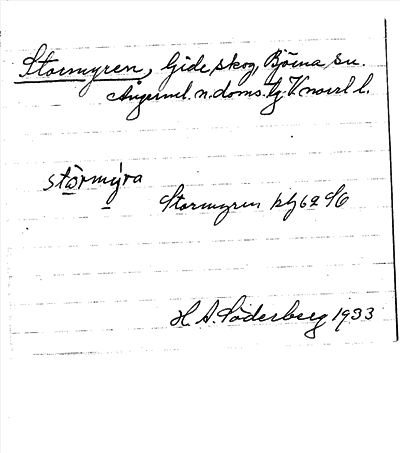 Stormyren, Gide skog, Björna sn.
Ångerml. n. doms. lg. V norrl l.
stòrmýra
Stormyren
H. A. Söderberg 1933